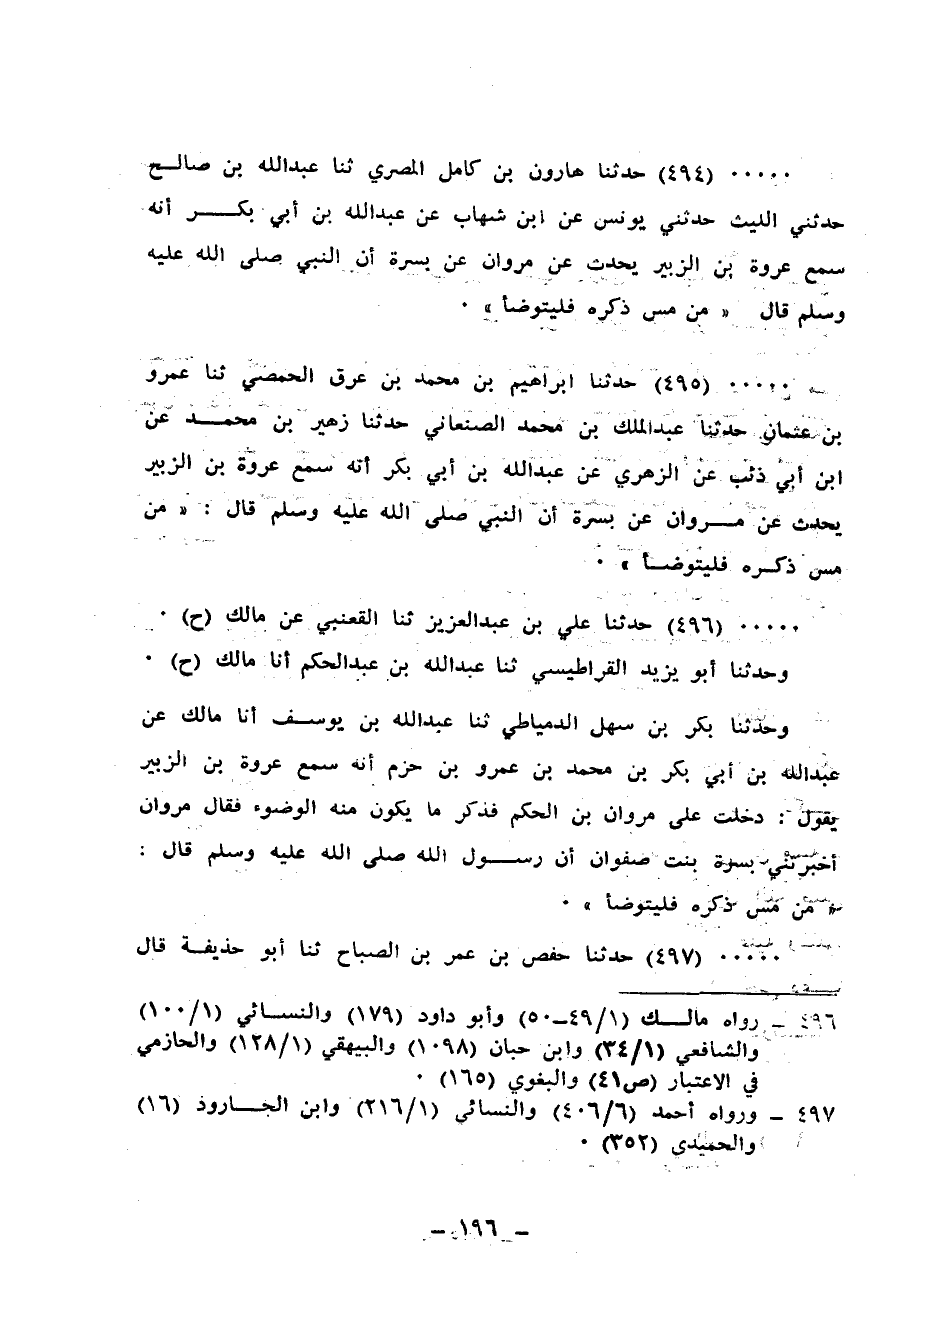 ..... (٤٩٤) حدثنا هارون بن كامل المصري ثنا عبدالله بن صالح
حدثني الليث حدثني يونس عن ابن شهاب عن عبدالله بن أبي بكر أنه
سمع عروة بن الزبير يحدث عن مروان عن بسرة أن النبي صلى الله عليه
وسلم قال « من مس ذكره فليتوضأ » .
..... (٤٩٥) حدثنا ابراهيم بن محمد بن عرق الحمصي ثنا عمرو
بن عثمان حدثنا عبدالملك بن محمد الصنعاني حدثنا زهير بن محمد عن
ابن أبي ذئب عن الزهري عن عبدالله بن أبي بكر أنه سمع عروة بن الزبير
يحدث عن مروان عن بسرة أن النبي صلى الله عليه وسلم قال : « من
مس ذكره فليتوضأ » .
..... (٤٩٦) حدثنا علي بن عبدالعزيز ثنا القعنبي عن مالك (ح) .
وحدثنا أبو يزيد القراطيسي ثنا عبدالله بن عبدالحكم أنا مالك (ح) .
وحدثنا بكر بن سهل الدمياطي ثنا عبدالله بن يوسف أنا مالك عن
عبدالله بن أبي بكر بن محمد بن عمرو بن حزم أنه سمع عروة بن الزبير
يقول : دخلت على مروان بن الحكم فذكر ما يكون منه الوضوء فقال مروان
أخبرتني بسرة بنت صفوان أن رسول الله صلى الله عليه وسلم قال :
« من مس ذكره فليتوضأ » .
..... (٤٩٧) حدثنا حفص بن عمر بن الصباح ثنا أبو حذيفة قال
٤٩٦ ـ رواه مالك (١/٤٩ـ٥٠) وأبو داود (١٧٩) والنسائي (١/١٠٠)
والشافعي (٣٤/١) وابن حبان (١٠٩٨) والبيهقي (١٢٨/١) والحازمي
في الاعتبار (ص٤١) والبغوي (١٦٥) .
٤٩٧ ـ ورواه أحمد (٤٠٦/٦) والنسائي (٢١٦/١) وابن الجارود (١٦)
والحميدي (٣٥٢) .
ـ ١٩٦ ـ